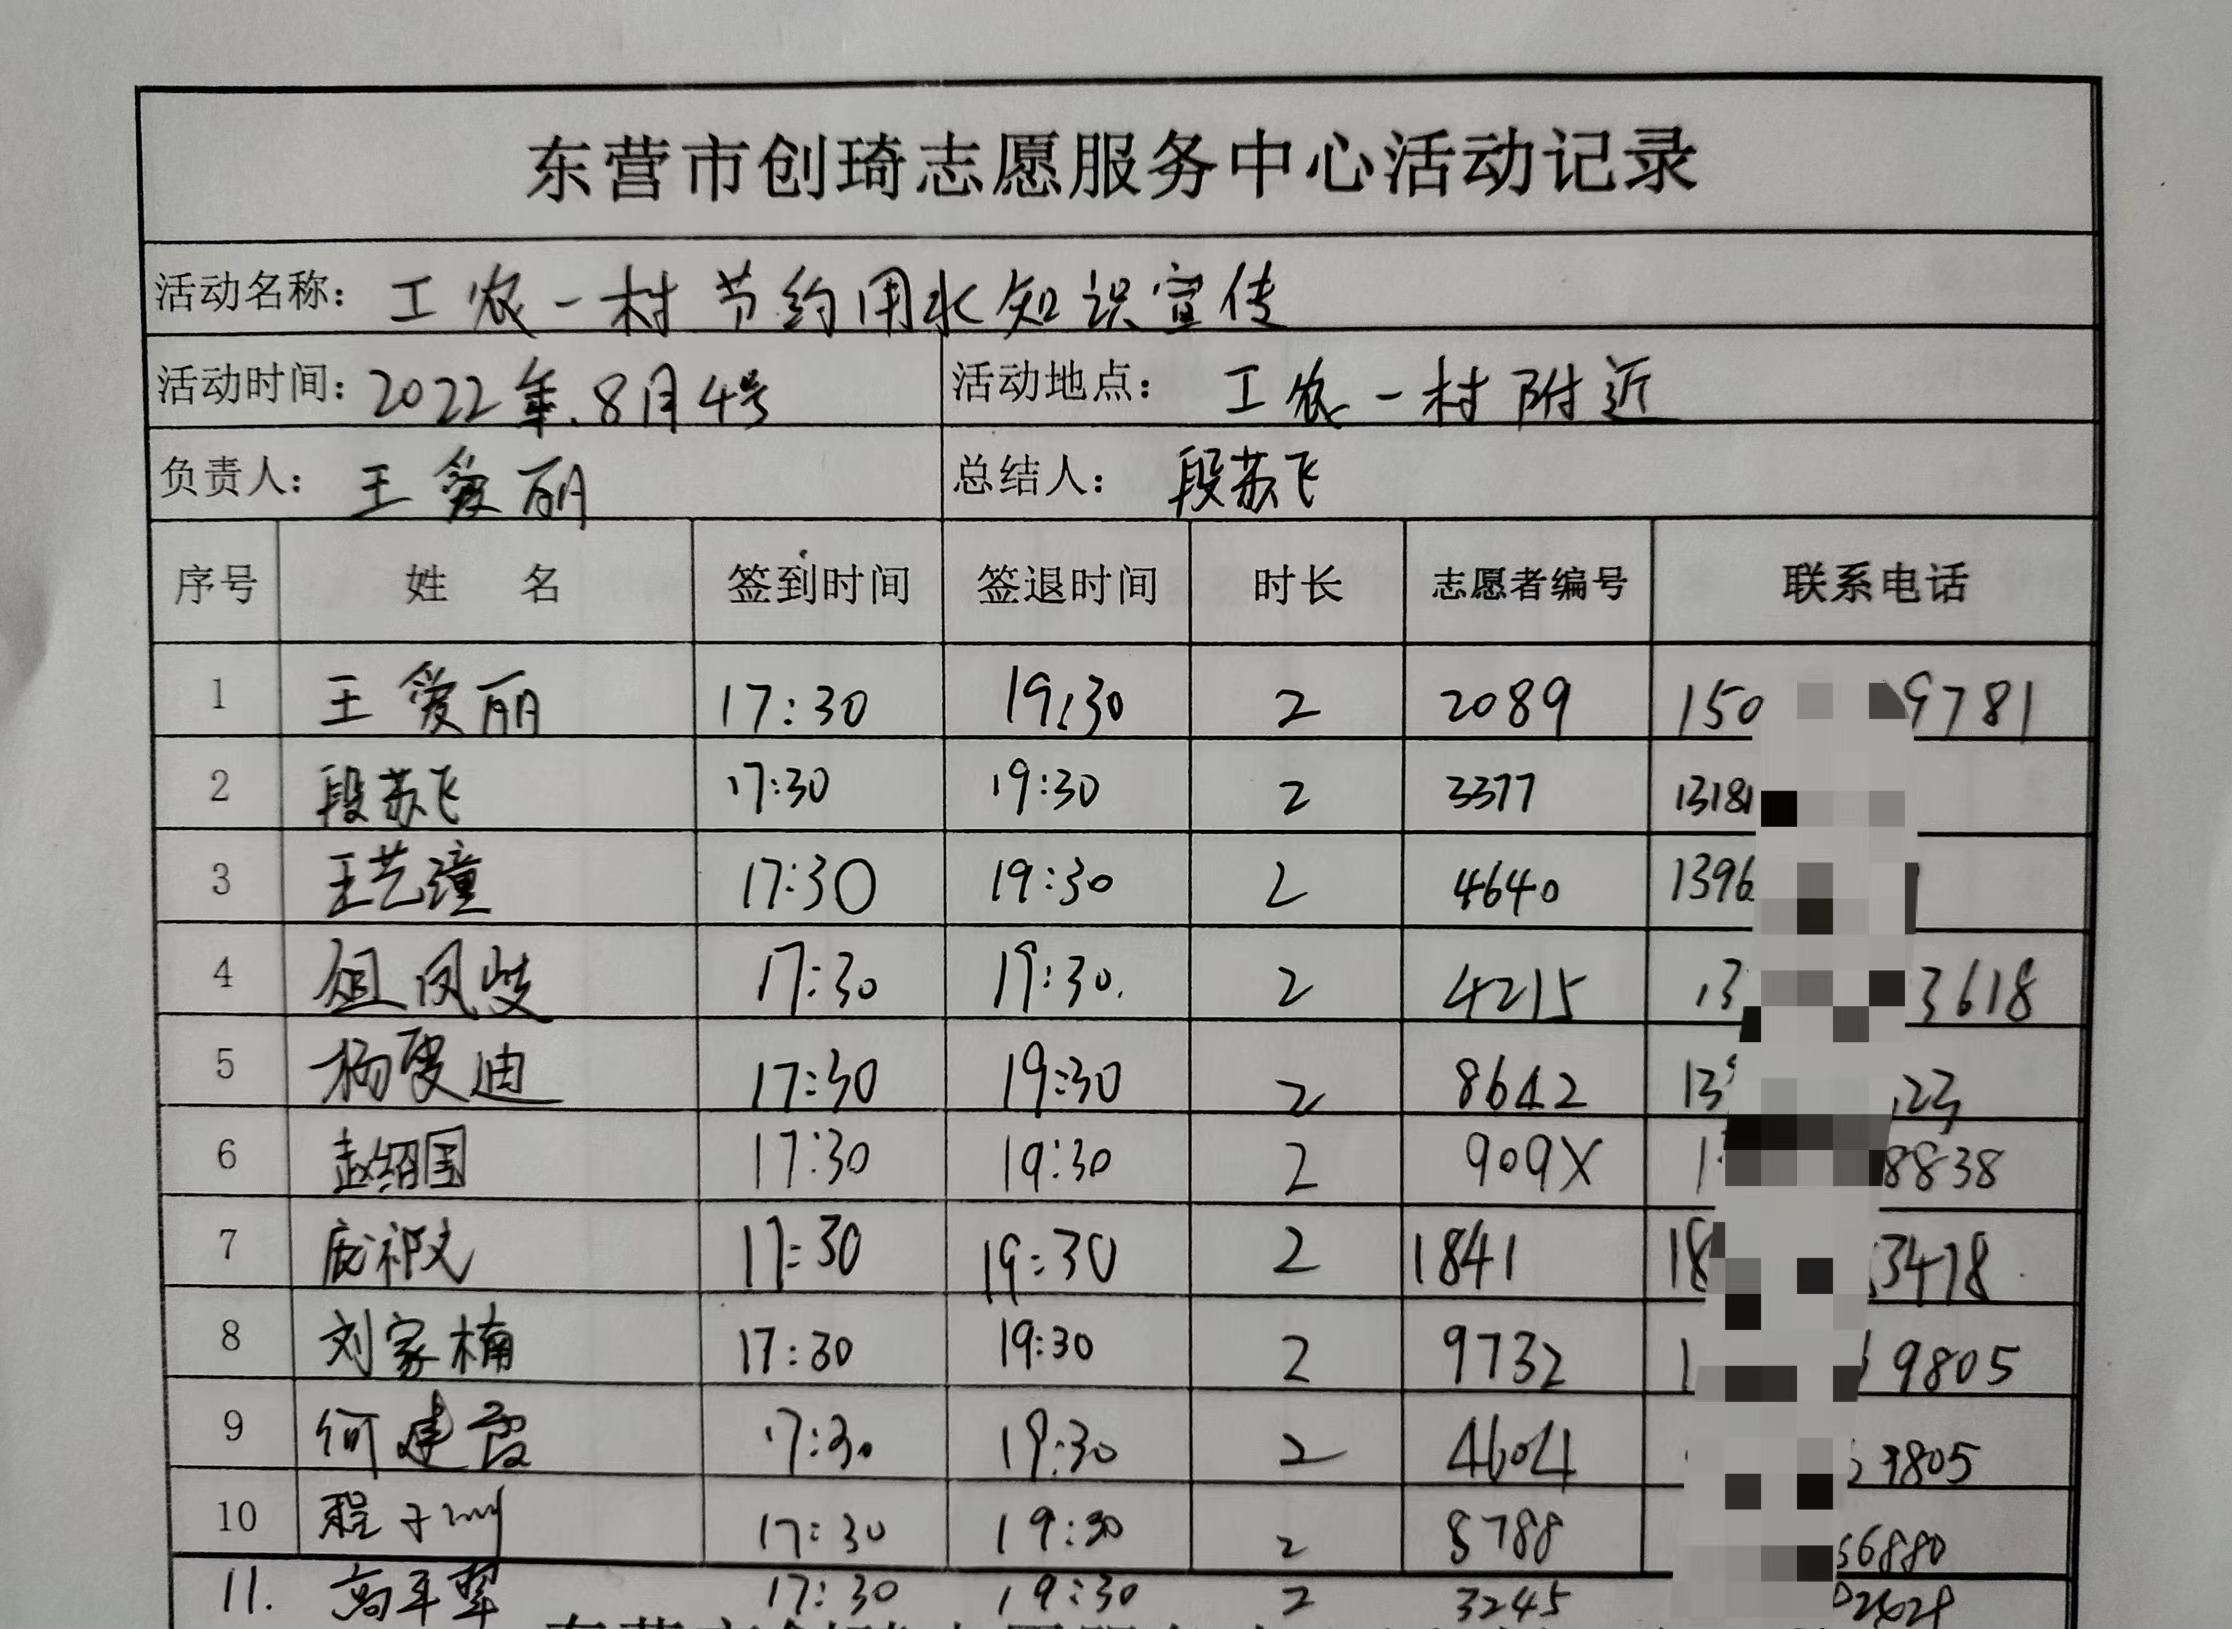 东营市创琦志愿服务中心活动记录
活动名称: 工农一村节约用水知识宣传
活动时间: 2022年.8月4号 活动地点: 工农一村附近
负责人: 王爱丽 总结人: 段苏飞
序号 姓 名 签到时间 签退时间 时长 志愿者编号 联系电话
1 王爱丽 17:30 19:30 2 2089 150 9781
2 段苏飞 17:30 19:30 2 3377 1318
3 王艺潼 17:30 19:30 2 4640 1396
4 俎凤岐 17:30 19:30. 2 4215 13 3618
5 杨雯迪 17:30 19:30 2 8642 13 23
6 赵绍国 17:30 19:30 2 909X 1 8838
7 庞祁文 17:30 19:30 2 1841 18 3478
8 刘家楠 17:30 19:30 2 9732 1 9805
9 何建霞 17:30 19:30 2 4604 9805
10 程子 17:30 19:30 2 8788 6880
11. 高 17:30 19:30 2 3245